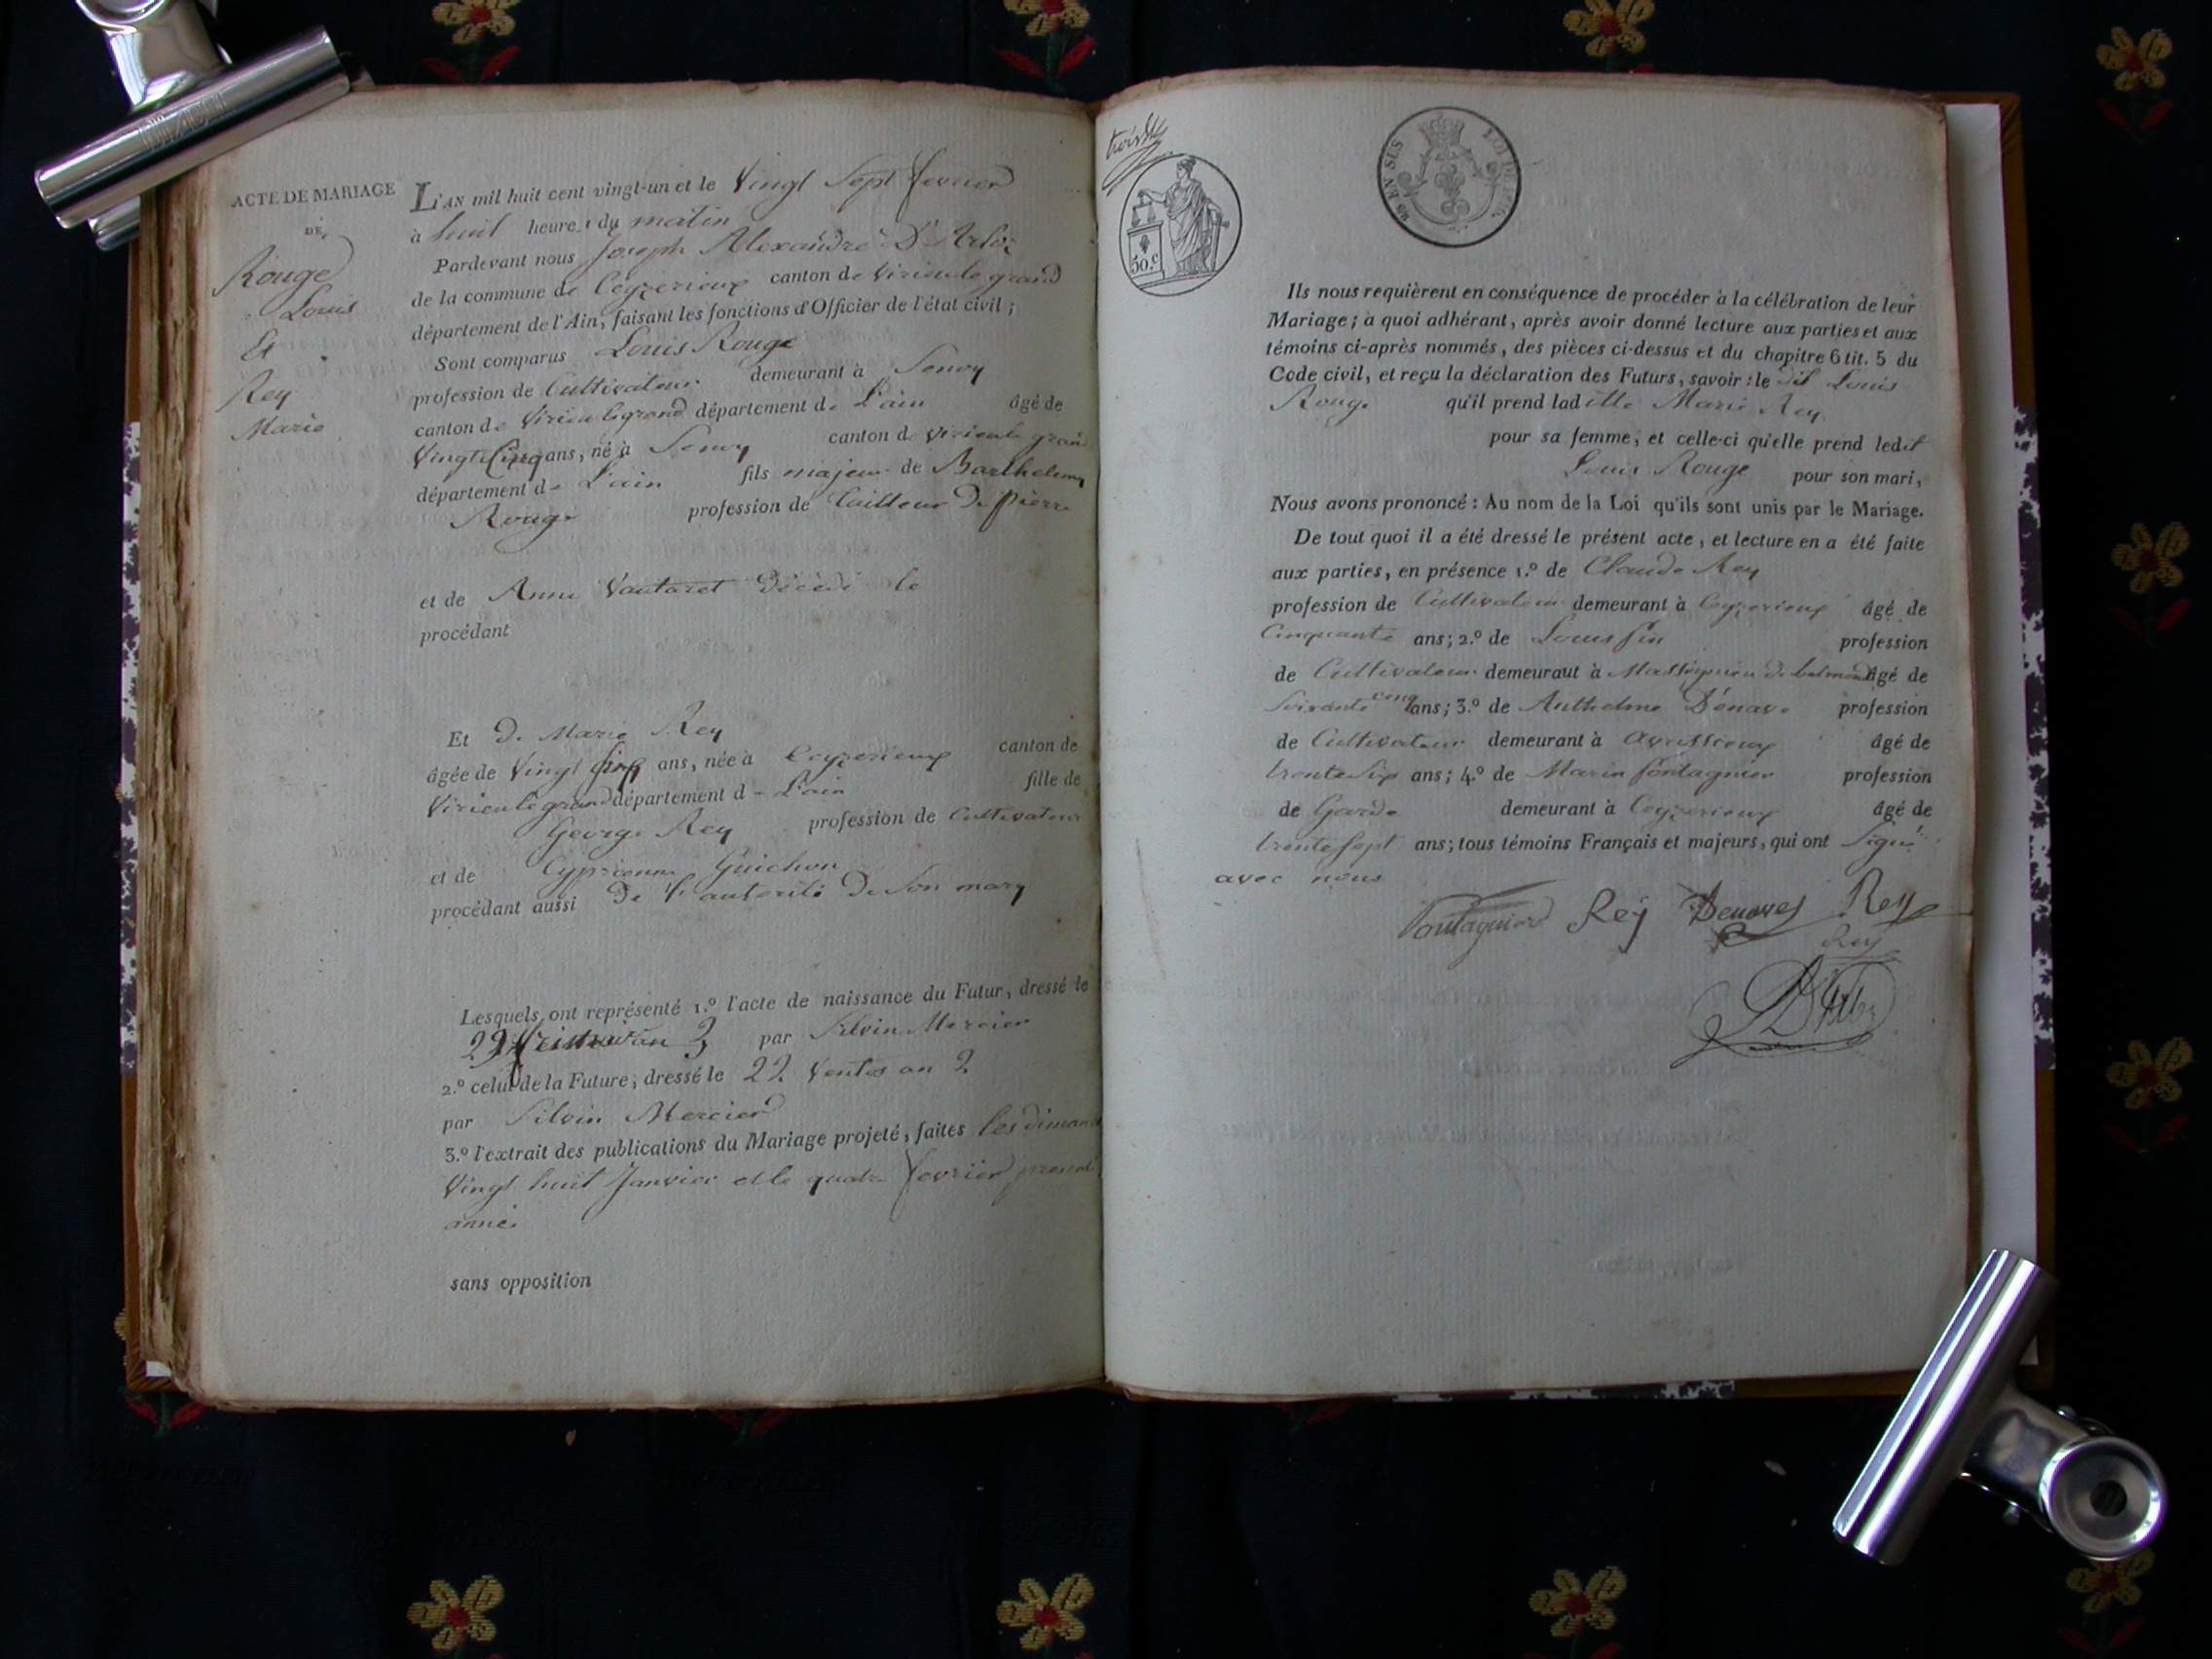 ACTE DE MARIAGE
DE
Rouge
Louis
Et
Rey
Marie
L'AN mil huit cent vingt-un et le Vingt Sept fevrier
à huit heures du matin
Pardevant nous Joseph Alexandre D'Arloz
de la commune de Ceyzerieux canton de Virieu le grand
département de l'Ain, faisant les fonctions d'Officier de l'état civil ;
Sont comparus Louis Rouge
profession de Cultivateur demeurant à
canton de Virieu le grand département de L'ain âgé de
Vingt Cinq ans, né à canton de Virieu le grand
département de L'ain fils majeur de Barthelemy
Rouge profession de Tailleur De pierre
et de Anne Vautaret décédé le
procédant
Et D. Marie Rey
âgée de Vingt Cinq ans, née à Ceyzerieux canton de
Virieu le grand département d L'ain fille de
George Rey profession de Cultivateur
et de Guichon
procédant aussi De l'autorité De Son mary
Lesquels ont représenté 1.º l'acte de naissance du Futur, dressé le
an 3 par Silvin Mercier
2.º celui de la Future, dressé le 22 Ventos an 2
par Silvin Mercier
3.º l'extrait des publications du Mariage projeté, faites les dimanc
Vingt huit Janvier et le quatre fevrier present
année
sans opposition
50.c
Ils nous requièrent en conséquence de procéder à la célébration de leur
Mariage ; à quoi adhérant, après avoir donné lecture aux parties et aux
témoins ci-après nommés, des pièces ci-dessus et du chapitre 6 tit. 5 du
Code civil, et reçu la déclaration des Futurs, savoir : le dit Louis
Rouge qu'il prend lad itte Marie Rey
pour sa femme, et celle-ci qu'elle prend ledit
Louis Rouge pour son mari,
Nous avons prononcé : Au nom de la Loi qu'ils sont unis par le Mariage.
De tout quoi il a été dressé le présent acte, et lecture en a été faite
aux parties, en présence 1.º de Claude Rey
profession de Cultivateur demeurant à Ceyzerieux âgé de
Cinquante ans; 2.º de Louis fin profession
de Cultivateur demeuraut à Massignieu d. belmond âgé de
Soixante cinq ans; 3.º de Anthelme Dénave profession
de Cultivateur demeurant à avrissieux âgé de
trente Six ans; 4.º de Marin fontagnier profession
de Garde demeurant à Ceyzerieux âgé de
trente Sept ans; tous témoins Français et majeurs, qui ont Signé
avec nous
Fontagnier Rey Denaves Rey
Rey